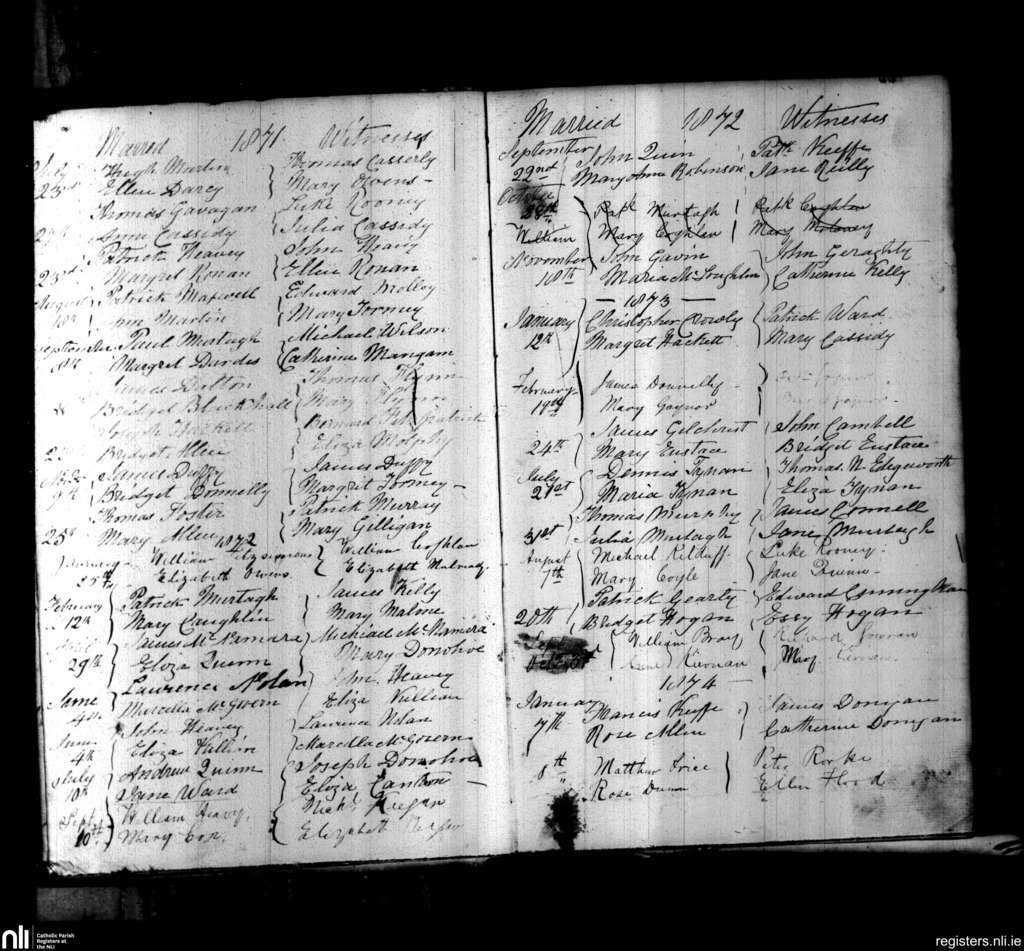 Married 1871 Witnesses
July Hugh Martin Thomas Casserly
23rd Ellen Darcy Mary Owens
Thomas Gavagan Luke Rooney
Anne Cassidy Julia Cassidy
Patrick Heavey John Heavy
23rd Margret Ronan Ellen Ronan
August Patrick Maxwell Edward Molloy
Ann Martin Mary Formey
September Paul Murtagh Michael Wilson
Margret Dardes Catherine Mangam
James Dalton Thomas Flynn
Bridget Blackhall Mary Flynn
Joseph Hackett Bernard Fitz
Bridget Allen Eliza Molphy
James Duffy James Duffy
9th Bridget Donnelly Margret Formey
Thomas Foster Patrick Murray
25th Mary Allen Mary Gilligan
1872
January William Fitzsimons William Coghlan
25th Elizabeth Owens Elizabeth
February Patrick Murtagh James Kelly
12th Mary Caughlin Mary Malone
James McNamara Michiael McNamara
29th Eliza Quinn Mary Donohoe
June Laurence Nolan John Heavey
4th Marcella McGovern Eliza Killien
June John Heavey Laurence Nolan
4th Eliza Killien Marcella McGovern
July Andrew Quinn Joseph Donohoe
10th Jane Ward Eliza
Sept William Heavy Keegan
10th Mary Cox Elizabeth
Married 1872 Witnesses
September John Quin Patk Keeffe
22nd Mary Anne Robinson Jane Reilly
October
28th Patk Murtagh Patk Coghlan
William Mary Coghlan Mary Moloney
November John Gavin John Geraghty
18th Maria McLoughlin Catherine Kelly
— 1873 —
January Christopher Crowly Patrick Ward
12th Margret Hackett Mary Cassidy
February James Donnelly
19th Mary Gaynor
James Gilchrist John Cambell
24th Mary Eustace Bridget Eustace
July Dennis Tynan Thomas N. Edgeworth
21st Maria Tynan Eliza Tynan
Thomas Murphy James Connell
31st Julia Murtagh Jane Murtagh
August Michael Kilduff Luke Rooney
7th Mary Coyle Jane Dunne
Patrick Gearty Edward Cunningham
20th Bridget Hogan Essy Hogan
Sept William Bray Richard
Kiernan Mary Kiernan
1874 —
January Francis Keeffe James Donegan
7th Rose Allen Catherine Donegan
8th Matthew Price Peter Rorke
" Rose Dunne Ellen Flood
nli
Catholic Parish
Registers at
the NLI
registers.nli.ie